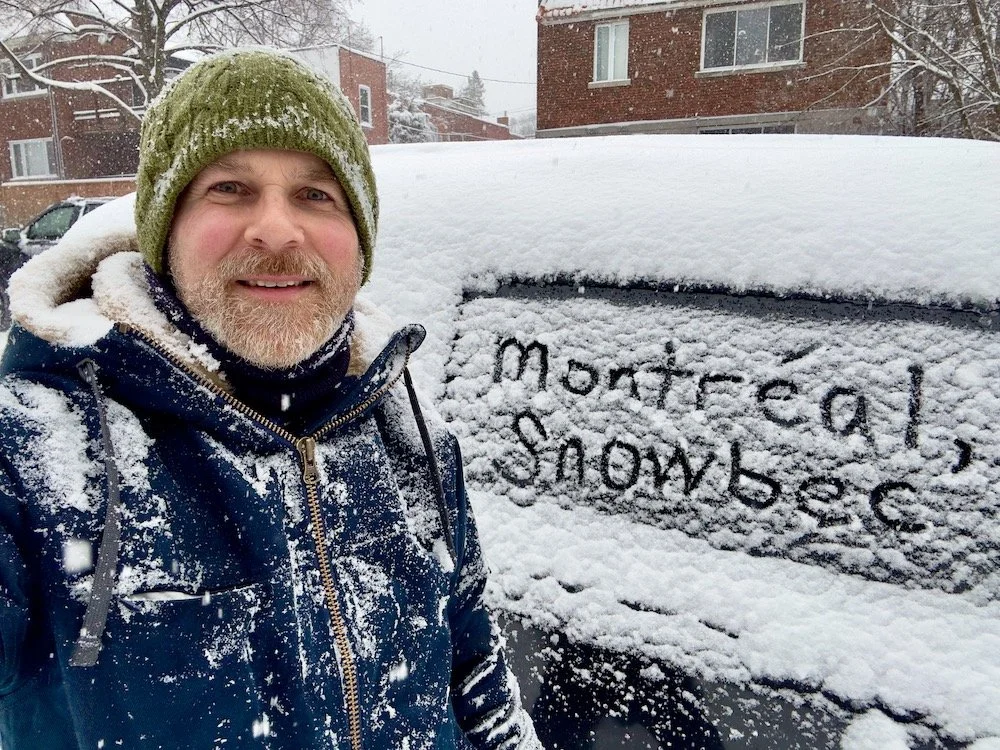 Montréal,
Snowbec